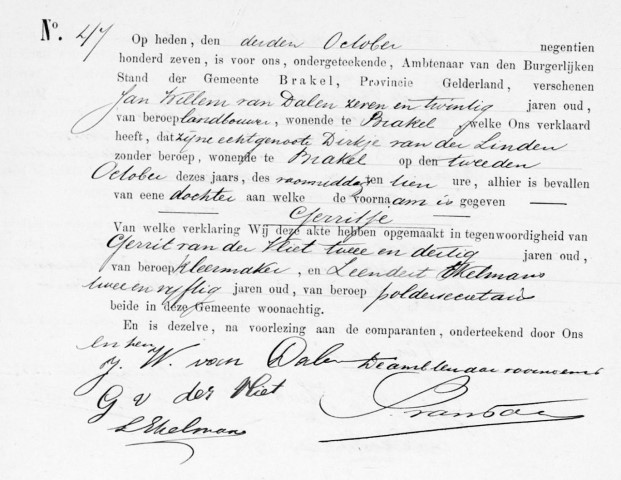 No. 47
Op heden, den derden October negentien
honderd zeven, is voor ons, ondergeteekende, Ambtenaar van den Burgerlijken
Stand der Gemeente Brakel, Provincie Gelderland, verschenen
Jan Willem van Dalen zeven en twintig jaren oud,
van beroep landbouwer, wonende te Brakel, welke Ons verklaard
heeft, dat zijne echtgenoote Dirkje van der Linden
zonder beroep, wonende te Brakel op den tweeden
October dezes jaars, des voormiddags ten tien ure, alhier is bevallen
van eene dochter aan welke de voornaam is gegeven
Gerritje
Van welke verklaring Wij deze akte hebben opgemaakt in tegenwoordigheid van
Gerrit van der Vliet twee en dertig jaren oud,
van beroep kleermaker, en Leendert Ekelmans
twee en vijftig jaren oud, van beroep poldersecretaris
beide in deze Gemeente woonachtig.
En is dezelve, na voorlezing aan de comparanten, onderteekend door Ons
en hen
J. W. van Dalen De ambtenaar voornoemd
G v der Vliet
L Ekelmans